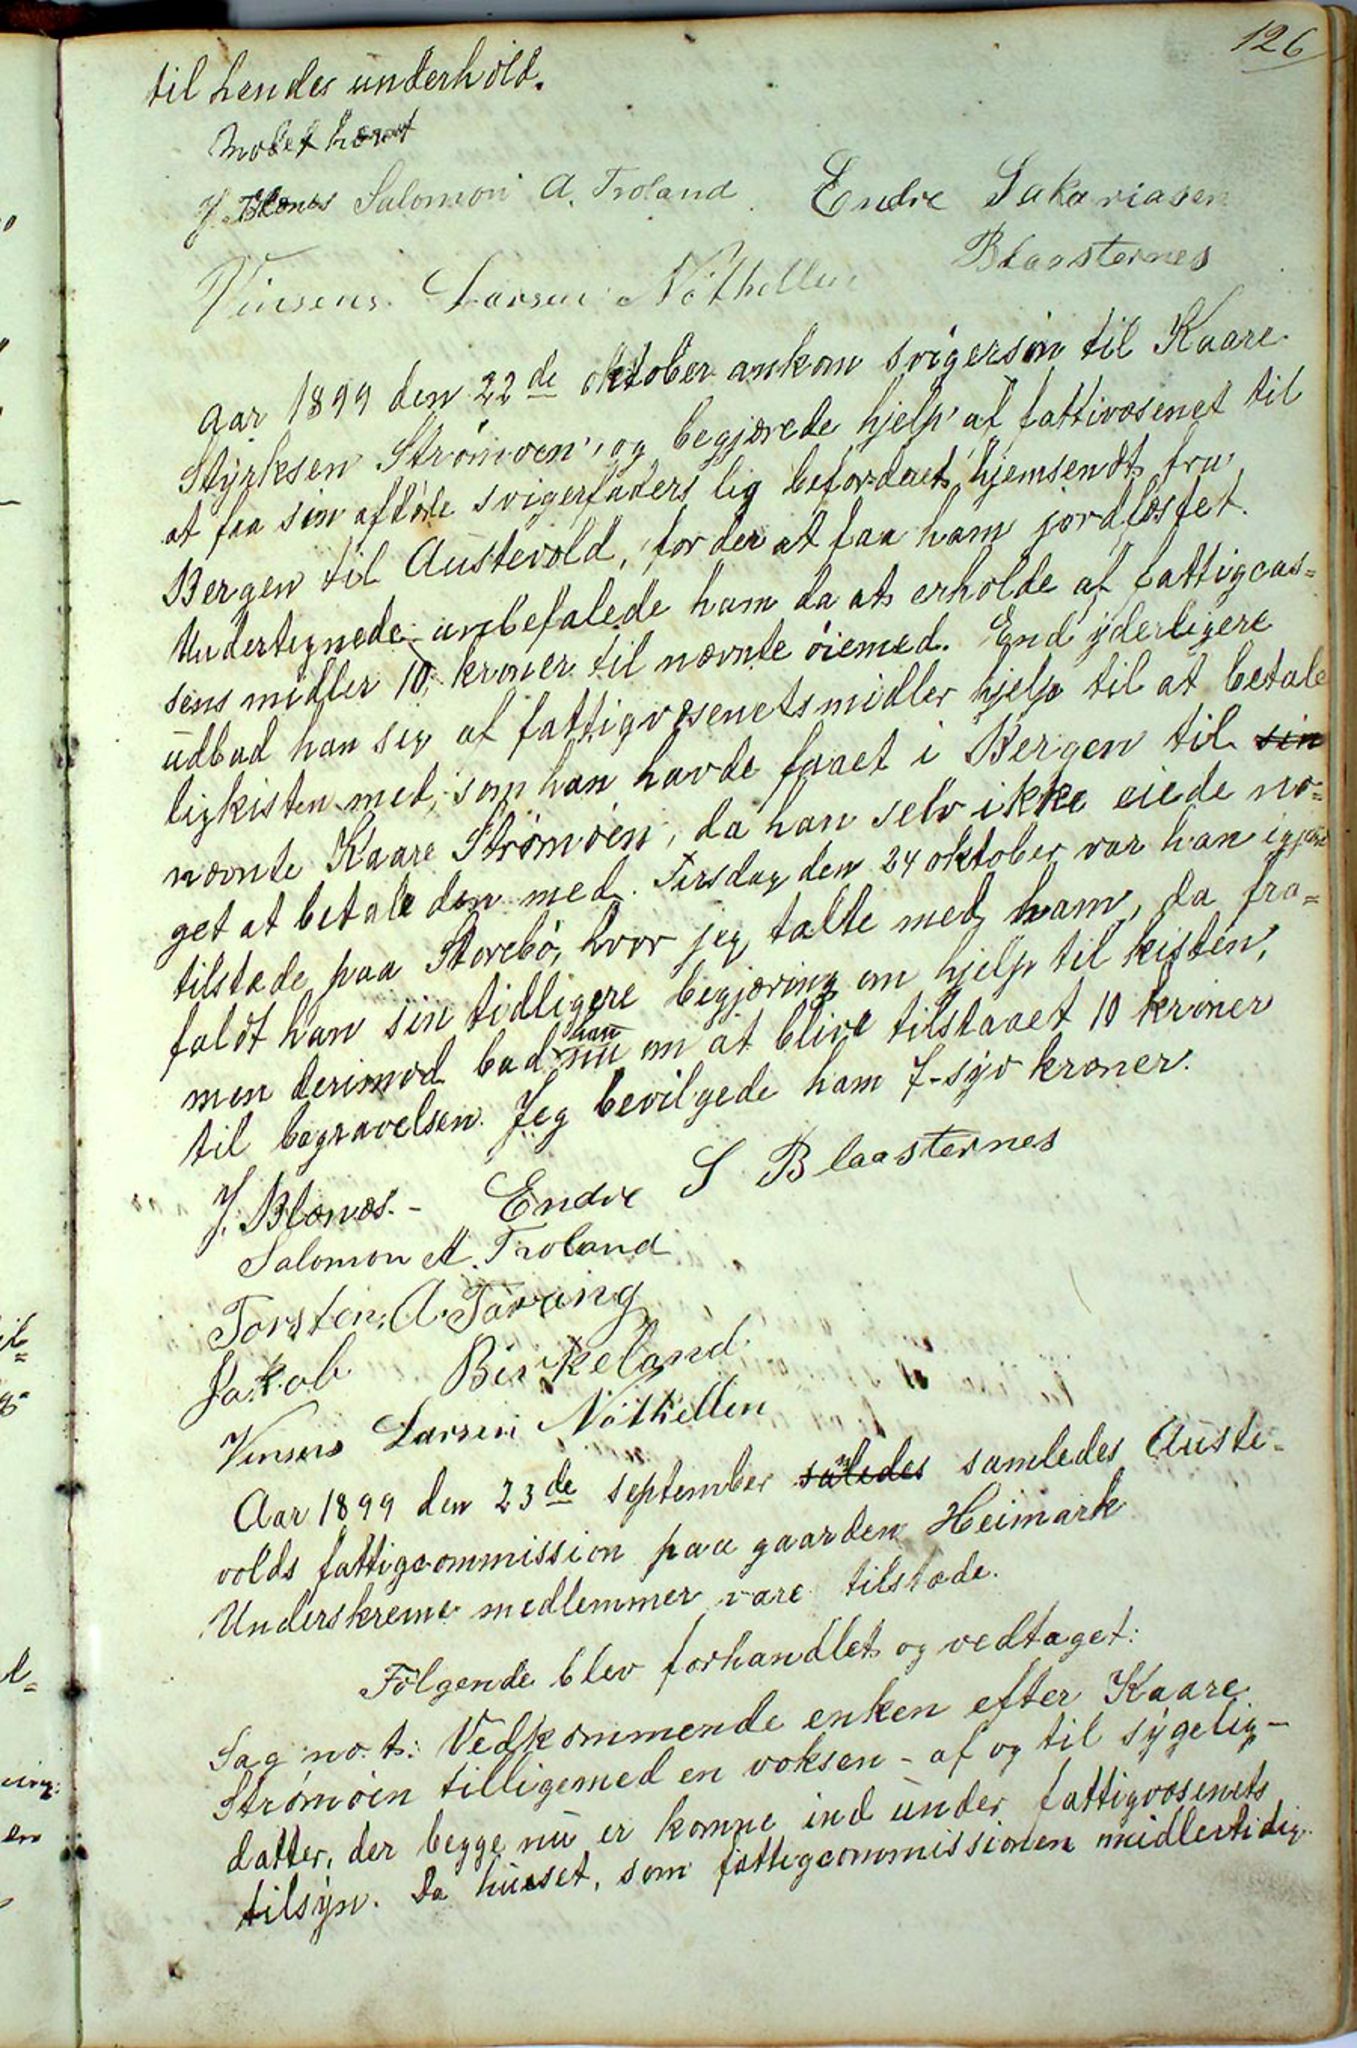 126
til hendes underhold.
Mødet hævet
J. Blænes Salomon A. Troland Endre Sakariasen
Blaasternes
Vinsens Larsen Nøthellen
Aar 1899 den 22de oktober ankom svigersøn til Kaare
Styrksen Strømøen, og begjærede hjelp af fattivæsenet til
at faa sin afdøde svigerfaders lig befordret hjemsendt fra
Bergen til Austevold, for der at faa ham jordfæstet.
Undertegnede anbefalede ham da at erholde af fattigcas=
sens midler 10 kroner til nævnte øiemed. End yderligere
udbad han sig af fattigvæsenets midler hjelp til at betale
ligkisten med, som han havde faaet i Bergen til sin
nævnte Kaare Strømøen, da han selv ikke eiede no=
get at betale den med. Tirsdag den 24 oktober var han igjen
tilstæde paa Storebø, hvor jeg talte med ham, da fra=
faldt han sin tidligere begjæring om hjelp til kisten,
men derimod bad han nu om at blive tilstaaet 10 kroner
til begravelsen. Jeg bevilgede ham 7-syv kroner.
J. Blænæs.- Endre S Blaasternes
Salomon A. Troland
Torsten A. Taranger
Jakob Birkeland
Vinsens Larsen Nøthellen
Aar 1899 den 23de september saaledes samledes Auste-
volds fattigcommission paa gaarden Heimark
Underskrevne medlemmer vare tilstæde.
Følgende blev forhandlet og vedtaget:
Sag no. 1: Vedkommende enken efter Kaare
Strømøen tilligemed en voksen - af og til sygelig -
datter, der begge nu er komne ind under fattigvæsenets
tilsyn. Da huset, som fattigcommissionen midlertidig